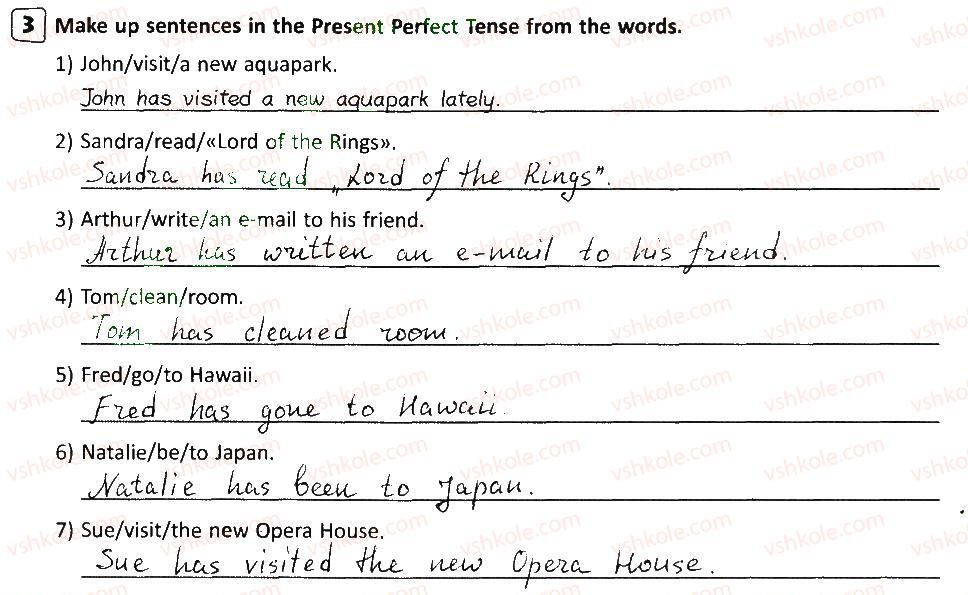 3 Make up sentences in the Present Perfect Tense from the words.
1) John/visit/a new aquapark.
John has visited a new aquapark lately.
2) Sandra/read/«Lord of the Rings».
Sandra has read „Lord of the Rings”.
3) Arthur/write/an e-mail to his friend.
Arthur has written an e-mail to his friend.
4) Tom/clean/room.
Tom has cleaned room.
5) Fred/go/to Hawaii.
Fred has gone to Hawaii.
6) Natalie/be/to Japan.
Natalie has been to Japan.
7) Sue/visit/the new Opera House.
Sue has visited the new Opera House.
vshkole.com